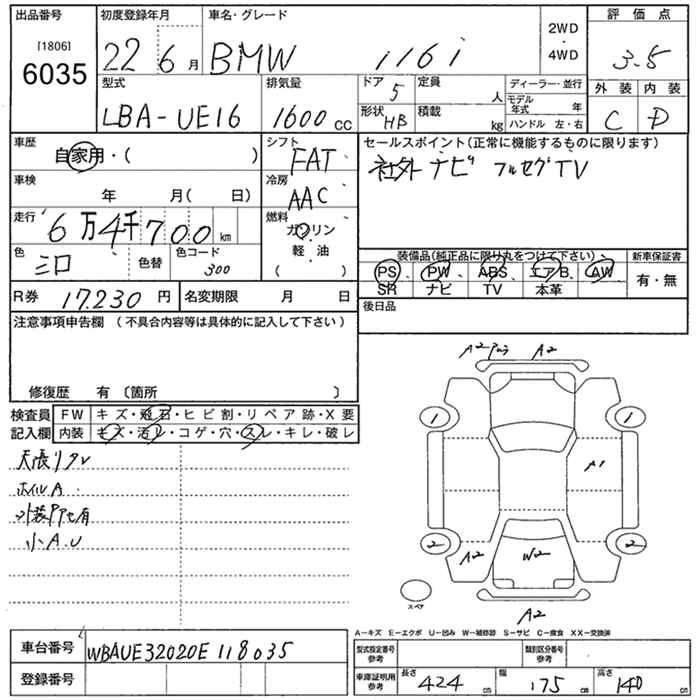 出品番号 初度登録年月 車名・グレード 評価点
[1806] 6035 22 6月 BMW 116i 2WD・4WD 3.5
型式 排気量 ドア 5 定員 人 ディーラー・並行 外装 内装
LBA-UE16 1600cc 形状 HB 積載 kg モデル年式 年 ハンドル 左・右 C D
車歴 自家用・( ) シフト FAT セールスポイント(正常に機能するものに限ります)
社外ナビ フルセグTV
車検 年 月( 日) 冷房 AAC
走行 6万4千700km 燃料 ガソリン
軽・油
( )
色 シロ 色替 色コード 300
装備品(純正品に限り丸をつけて下さい) 新車保証書
PS、PW、ABS、エアB、AW 有・無
SR ナビ TV 本革
R券 17,230円 名変期限 月 日 後日品
注意事項申告欄(不具合内容等は具体的に記入して下さい)
修復歴 有〔箇所 〕
検査員 FW キズ・飛石・ヒビ割・リペア跡・X要
記入欄 内装 キズ・汚レ・コゲ・穴・スレ・キレ・破レ
天張リタレ
ホイルA
外装PP色有
小A.U
A2 A2
1 1
A1
2 2
A2 W2
スペア
A2
A-キズ E-エクボ U-凹み W-補修跡 S-サビ C-腐食 XX-交換済
車台番号 WBAUE32020E118035
登録番号
型式指定番号 参考 類別区分番号 参考
車庫証明用 参考 長さ 424cm 幅 175cm 高さ 140cm